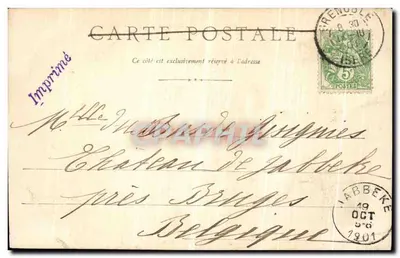 CARTE POSTALE
Ce côté est exclusivement réservé à l'adresse
Imprimé
GRENOBLE
5
POSTES
Mlle du Bus de
Château de Jabbeke
près Bruges
Belgique
JABBEKE
19
OCT
5-6
1901